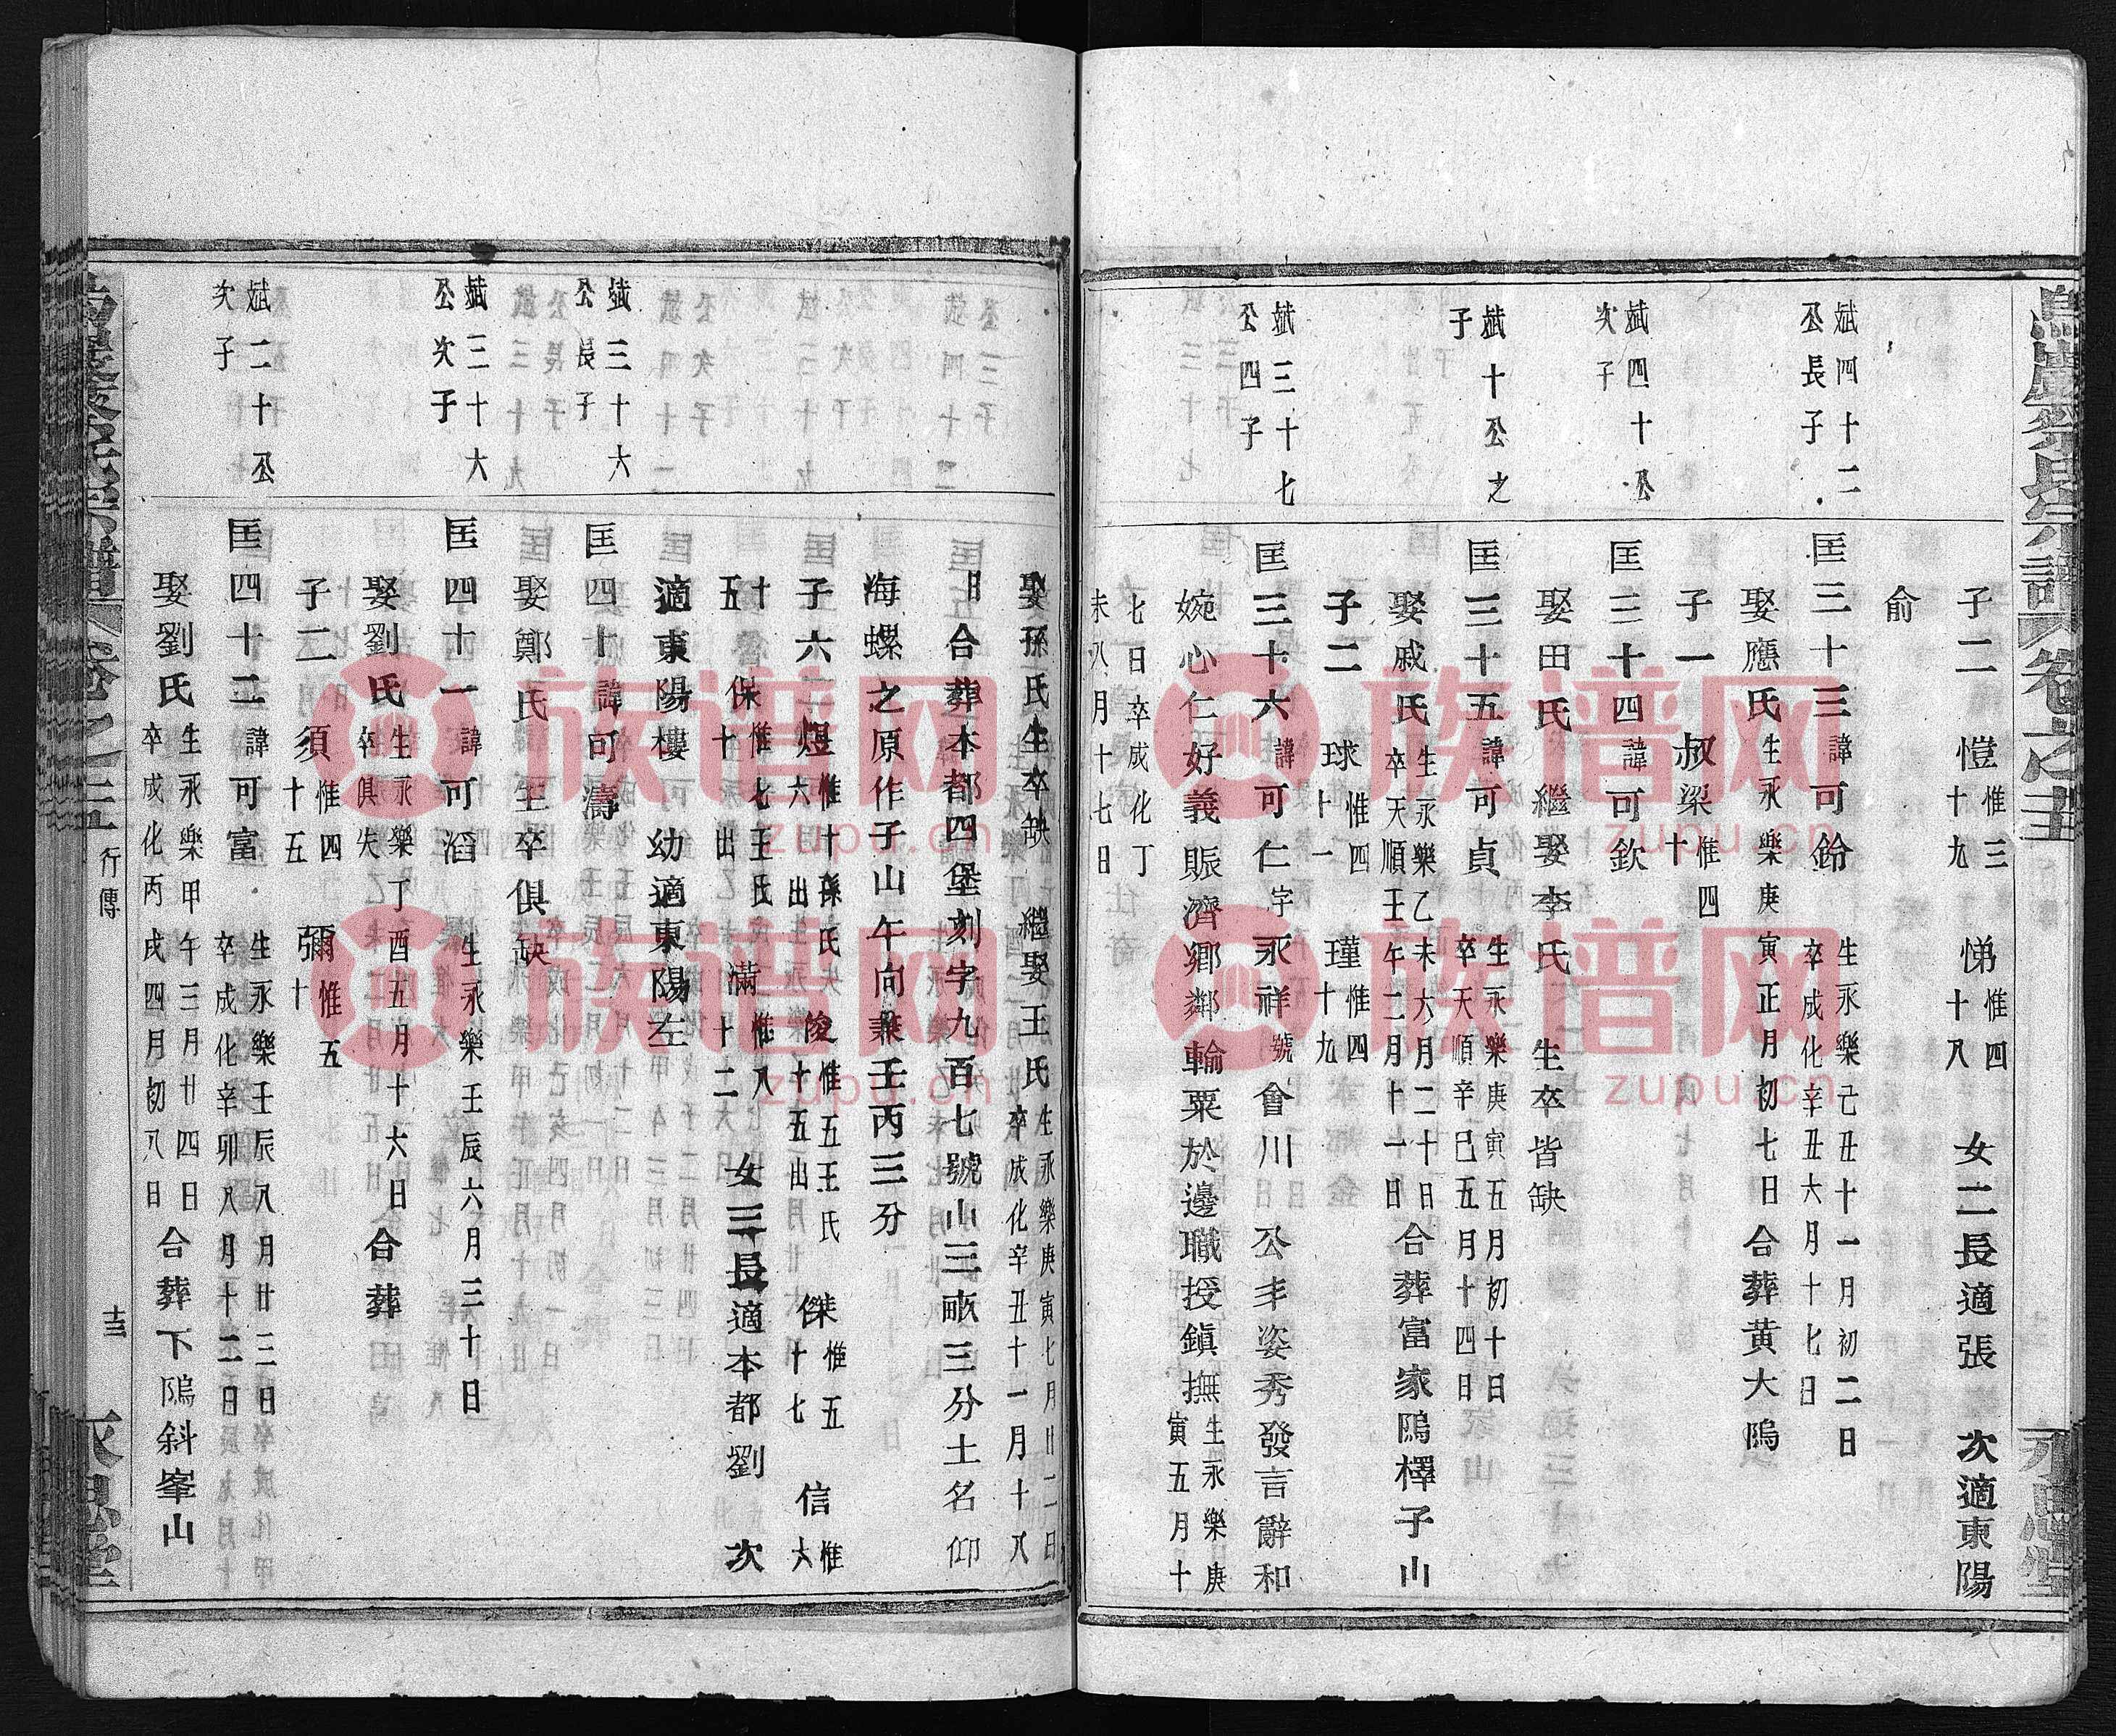 子二 愷惟三十九 悌惟四十八 女二長適張 次適東陽
俞
斌四十二公長子
匡三十三諱可鈴 生永樂己丑十一月初二日卒成化辛丑六月十七日
娶應氏生永樂庚寅正月初七日 合葬黄大隝
子一 叔梁惟四十
斌四十公次子
匡三十四諱可欽
娶田氏 繼娶李氏 生卒皆缺
斌十公之子
匡三十五諱可貞 生永樂庚寅五月初十日卒天順辛巳五月十四日
娶戚氏生永樂乙未六月二十日卒天順壬午二月十一日 合葬富家隝檡子山
子二 球惟四十一 瑾惟四十九
斌三十七公四子
匡三十六諱可仁字永祥號會川 公丰姿秀發言辭和
婉心仁好義賑濟鄉鄰輸粟於邊職授鎮撫生永樂庚寅五月十
七日卒成化丁未八月十七日
娶孫氏生卒缺 繼娶王氏生永樂庚寅七月廿二日卒成化辛丑十一月十八
日合葬本都四堡刻字九百七號山三畝三分土名仰
海螺之原作子山午向兼壬丙三分
子六 煜惟十孫氏六出 俊惟五王氏十五出 傑惟五十七 信惟六
十五 保惟七王氏十出 滿惟八十二 女三長適本都劉 次
適東陽樓 幼適東陽左
斌三十六公長子
匡四十諱可濤
娶鄭氏生卒俱缺
斌三十六公次子
匡四十一諱可滔 生永樂壬辰六月三十日
娶劉氏生永樂丁酉五月十六日卒俱失 合葬
子二 須惟四十五 彌惟五十
斌二十公次子
匡四十二諱可富 生永樂壬辰八月廿三日卒成化辛卯八月十二日
娶劉氏生永樂甲午三月廿四日卒成化丙戌四月初八日 合葬下隝斜峯山
卷之三 行傳
永思堂
族谱网
zupu.cn
族谱网
zupu.cn
族谱网
zupu.cn
族谱网
zupu.cn